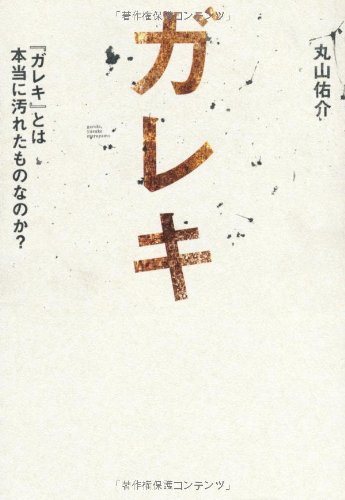 「著作権保護コンテンツ」
丸山佑介
ガレキ
gareki,
yusuke
maruyama
『ガレキ』とは
本当に汚れたものなのか?
「著作権保護コンテンツ」